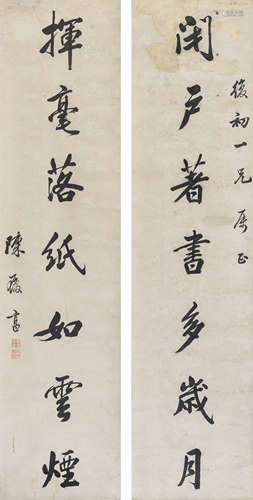 復初一兄屬正
閉戶著書多歲月
揮毫落紙如雲煙
陳